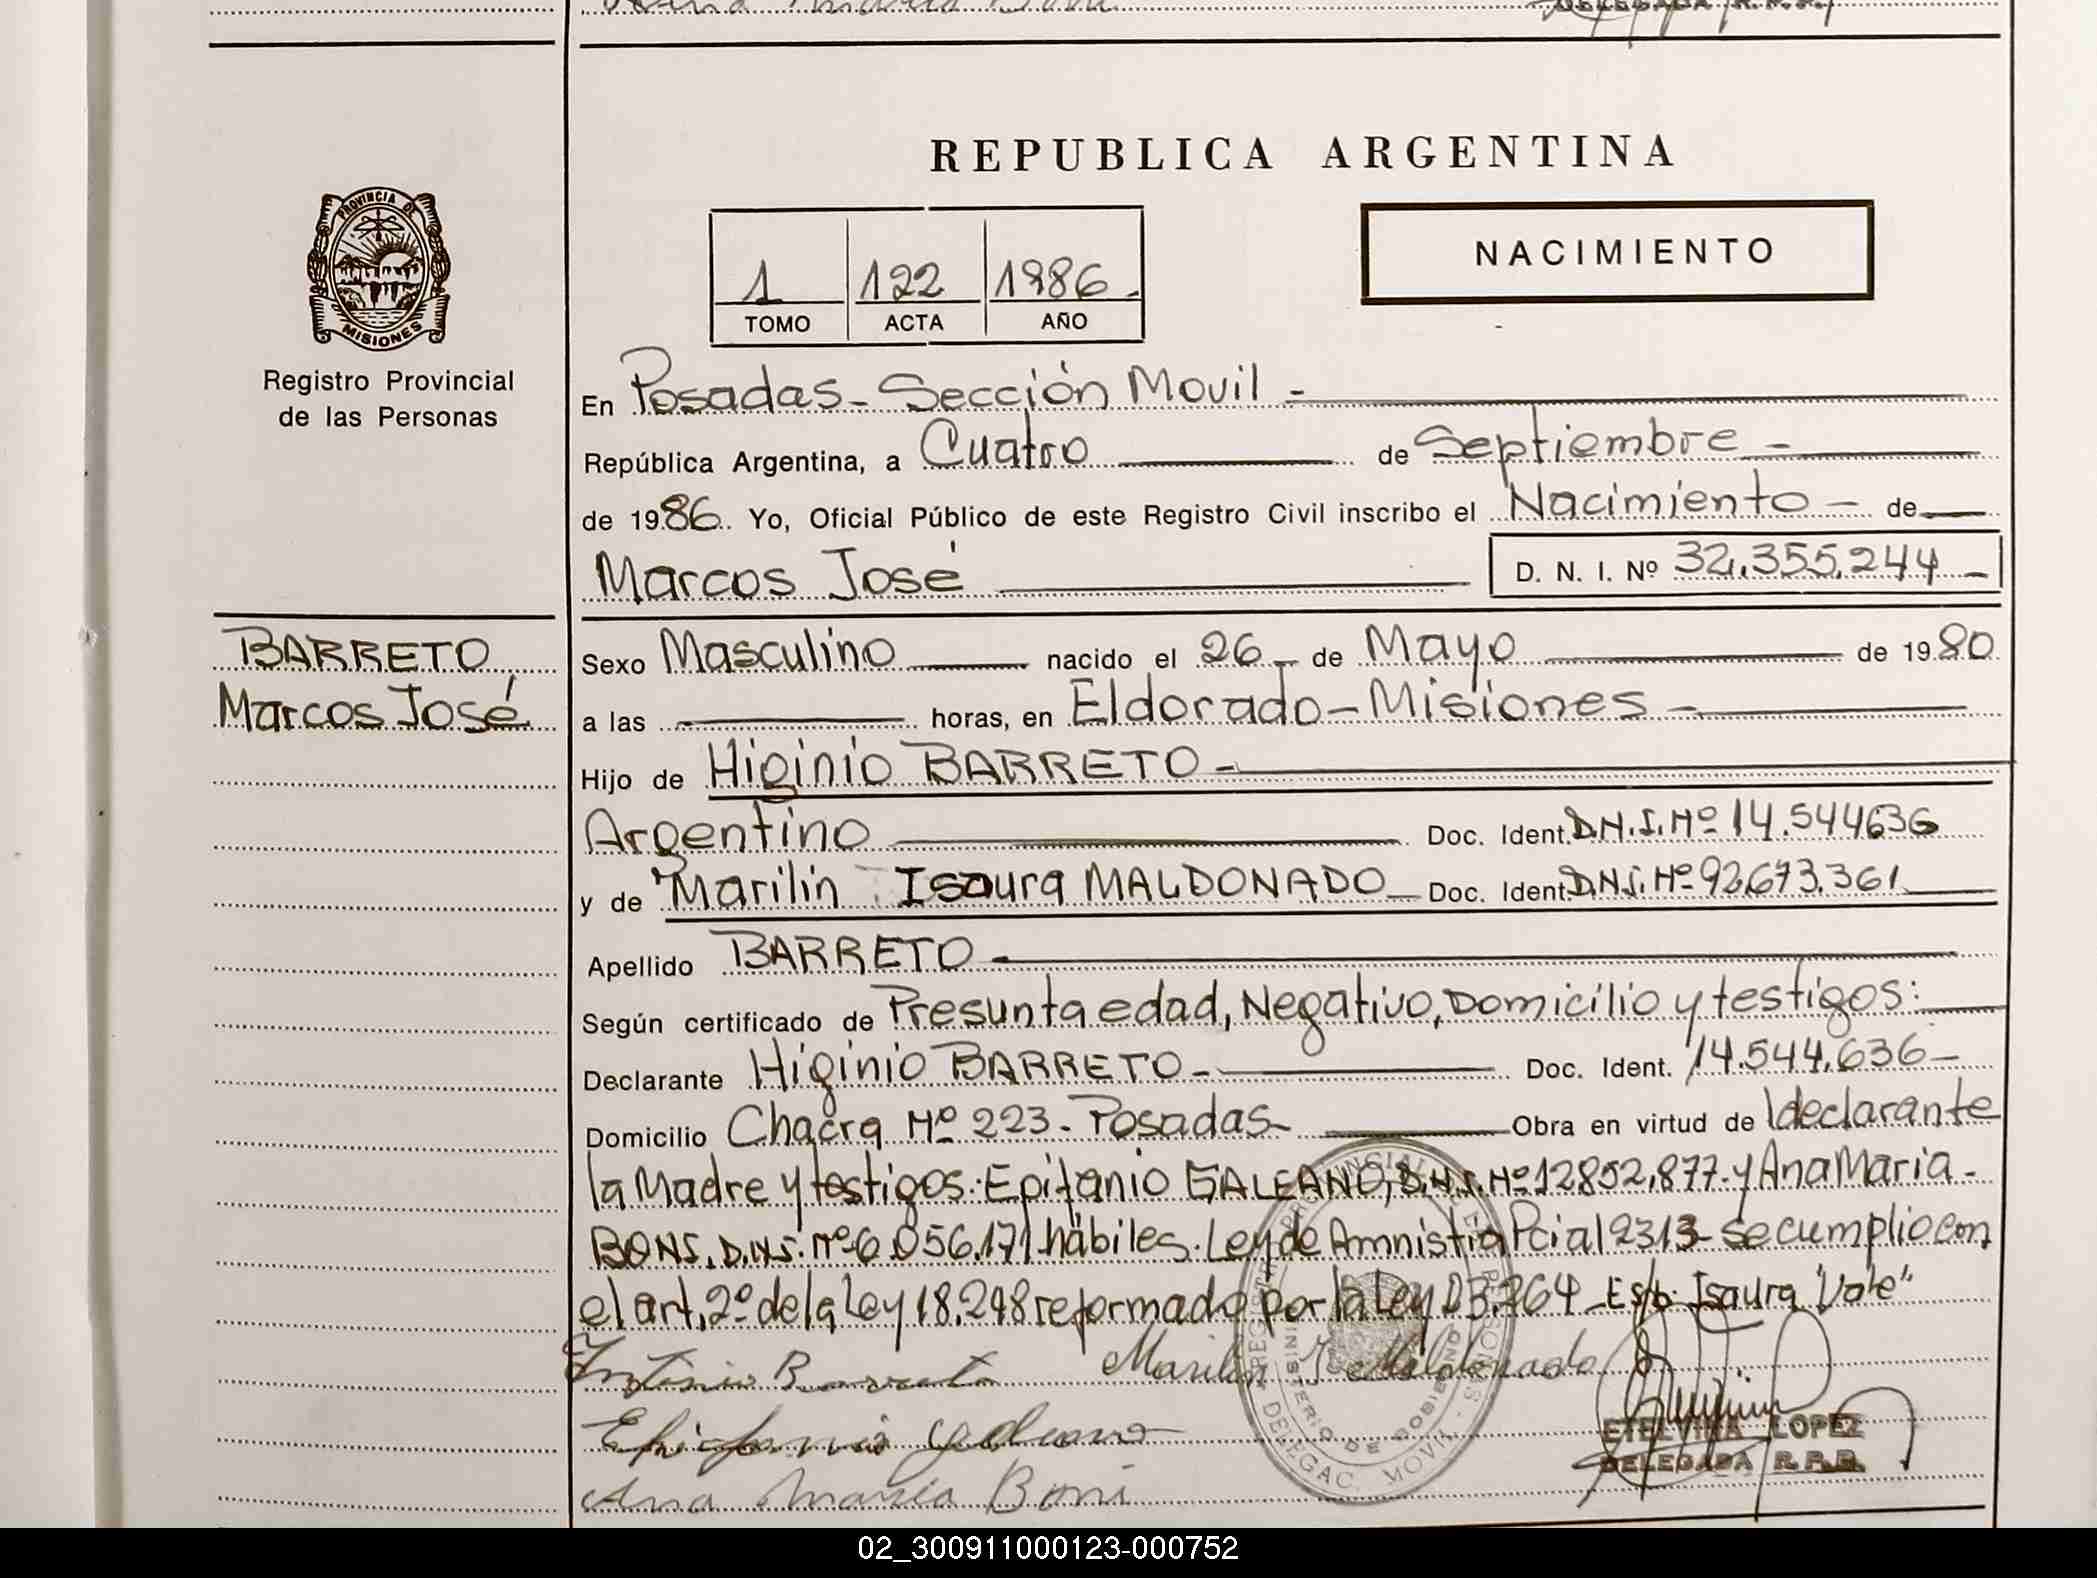 REPUBLICA ARGENTINA
PROVINCIA DE
MISIONES
Registro Provincial
de las Personas
NACIMIENTO
1 122 1986.-
TOMO ACTA AÑO
En Posadas-Sección Movil-
República Argentina, a Cuatro de Septiembre-
de 1986. Yo, Oficial Público de este Registro Civil inscribo el Nacimiento- de
Marcos José D. N. I. Nº 32.355.244-
BARRETO
Marcos José
Sexo Masculino nacido el 26- de Mayo de 1980
a las horas, en Eldorado-Misiones-
Hijo de Higinio BARRETO-
Argentino Doc. Ident. D.N.I.Nº 14.544636
y de Marilin Isaura MALDONADO- Doc. Ident. D.N.I.Nº 92.673.361
Apellido BARRETO-
Según certificado de Presunta edad, Negativo, Domicilio y testigos:
Declarante Higinio BARRETO- Doc. Ident. 14.544.636-
Domicilio Chacra Nº 223-Posadas- Obra en virtud de l declarante
la Madre y testigos: Epifanio GALEANO, D.N.I.Nº 12852.877-y Ana Maria-
BONI. D.N.I. Nº 6.056.171 hábiles. Ley de Amnistia Pcial 2313- se cumplio con
el art. 2º de la Ley 18.248 reformado por la Ley 23.264-Es/b: Isaura "Vale"
Barreto Marilin I. Maldonado
Epifanio galeano
Ana María Boni
ETELVINA LOPEZ
DELEGADA R.P.P.
DELEGAC. MOVIL
MINISTERIO DE GOBIERNO
02_300911000123-000752